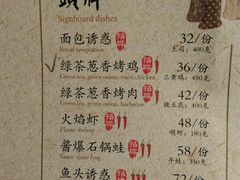 招牌
Signboard dishes
面包诱惑 32/份
Bread temptation 土司：400克
绿茶葱香烤鸡 36/份
Green tea, green onion, roast chicken 三黄鸡：450克
绿茶葱香烤肉 42/份
Green tea, green onion, barbecue 猪五花：400克
火焰虾 48/份
Flame shrimp 明虾：180克
酱爆石锅蛙 58/份
Sauce stone frog 牛蛙：350克
鱼头诱惑 72/份